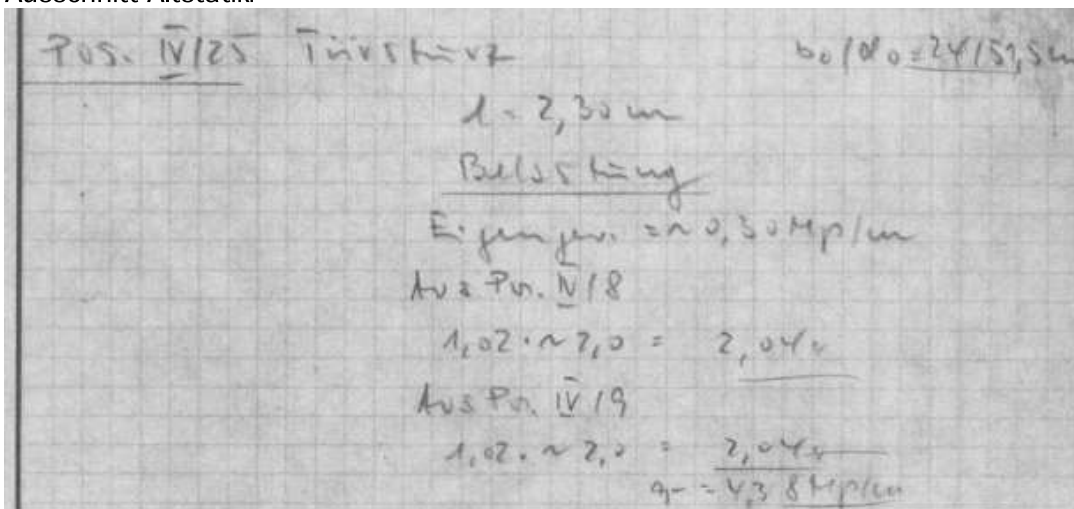 Ausschnitt Altstatik:
Pos. IV/25 Türsturz b₀/d₀ = 24/51,5 cm
l = 2,30 m
Belastung
Eigengew. = ~ 0,30 Mp/m
Aus Pos. IV/8
1,02 · ~ 2,0 = 2,04 "
Aus Pos. IV/9
1,02 · ~ 2,0 = 2,04 "
q = 4,38 Mp/m